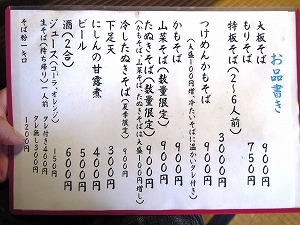 お品書き
大板そば 900円
もりそば 750円
特板そば(2~6人前) 3000円
つけめんかもそば 900円
(大盛100円増、冷たいそばに温かいタレ付き)
かもそば 900円
山菜そば(数量限定) 900円
たぬきそば(数量限定) 900円
(かもそば、山菜そば、たぬきそばは大盛100円増し)
冷したぬきそば(夏季限定) 900円
下足天 300円
にしんの甘露煮 400円
ビール 500円
酒(2合) 600円
ジュース(コーラ、オレンジ) 150円
生そば(持ち帰り)一人前 タレ付き400円
タレ無し300円
そば粉一キロ 1200円